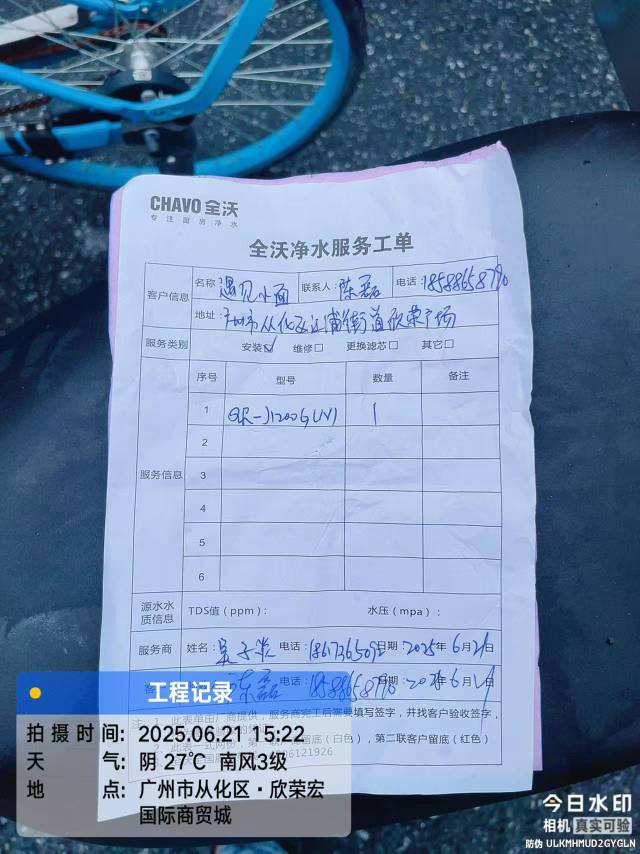 CHAVO 全沃
专注厨房净水
全沃净水服务工单
客户信息 名称: 遇见小面 联系人: 陈磊 电话: 18588658790
地址: 广州市从化区江埔街道欣荣广场
服务类别 安装☑ 维修□ 更换滤芯□ 其它□
服务信息 序号 型号 数量 备注
1 QR-J1200G(UV) 1
2
3
4
5
6
源水水质信息 TDS值(ppm): 水压(mpa):
服务商 姓名: 电话: 日期: 2025年6月21日
陈磊 电话: 18588658790 日期: 2025年6月21日
注: 1、此表单由厂商提供,服务商完工后需要填写签字,并找客户验收签字,
(白色),第二联客户留底(红色)
06121926
工程记录
拍摄时间: 2025.06.21 15:22
天气: 阴 27℃ 南风3级
地点: 广州市从化区·欣荣宏
国际商贸城
今日水印
相机 真实可验
防伪 ULKMHMUD2GYGLN